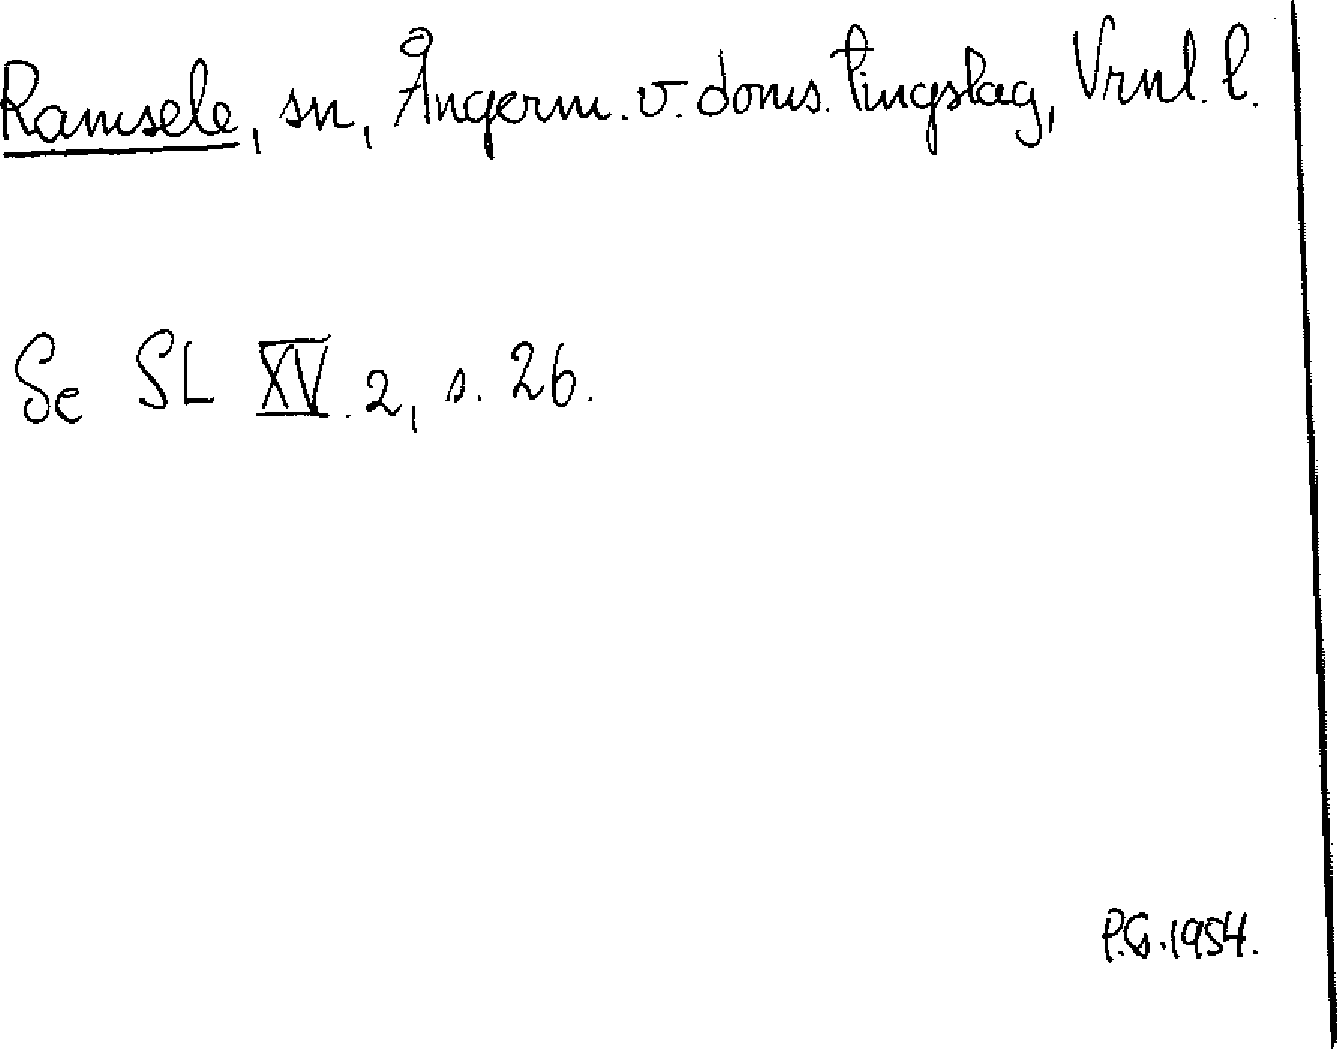 Ramsele, sn, Ångerm. v. doms. tingslag, Vrnl. l.
Se SL XV. 2, s. 26.
P.G. 1954.